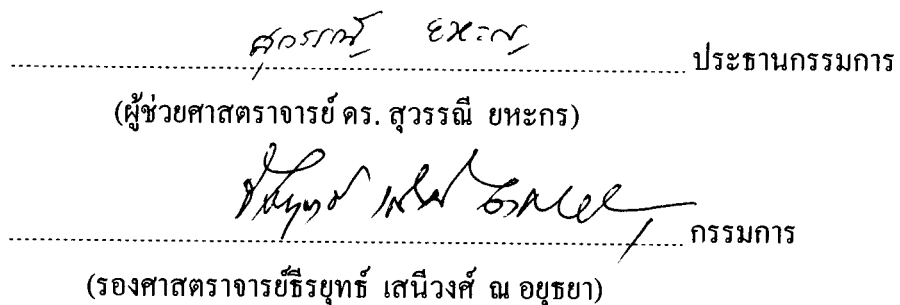 สุวรรณี ยหะกร
ประธานกรรมการ
(ผู้ช่วยศาสตราจารย์ ดร. สุวรรณี ยหะกร)
กรรมการ
(รองศาสตราจารย์ธีรยุทธ์ เสนีวงศ์ ณ อยุธยา)